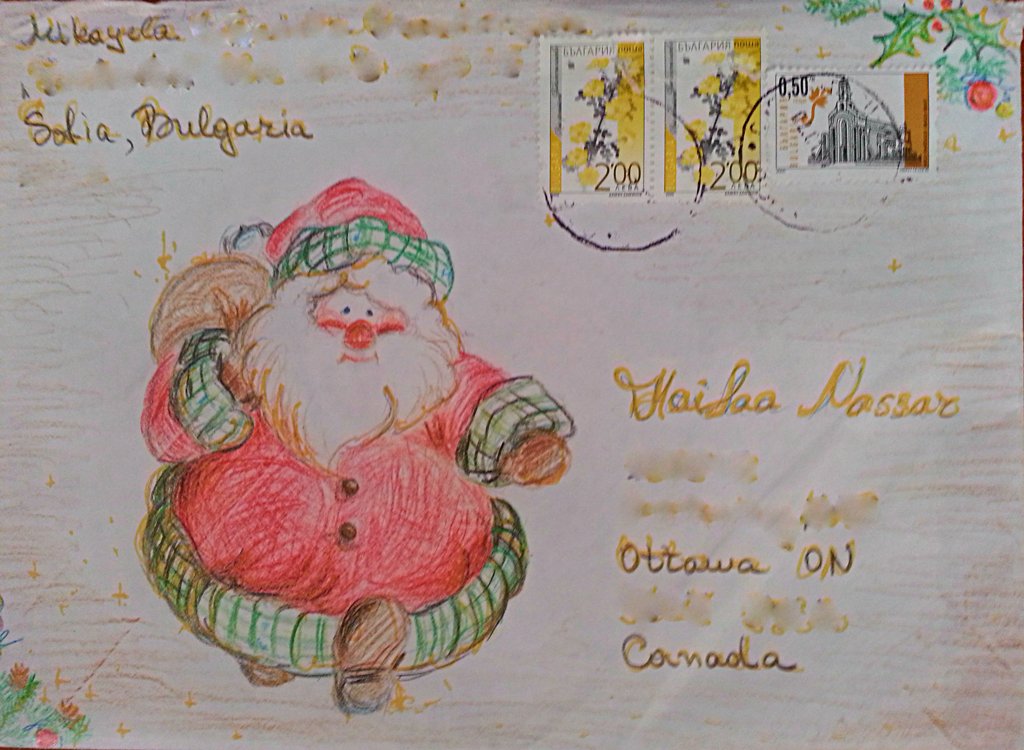 Mikayela
Sofia, Bulgaria
БЪЛГАРИЯ поща
2.00
ЛЕВА
БЪЛГАРИЯ поща
2.00
ЛЕВА
0,50
Haifaa Nassar
Ottawa ON
Canada